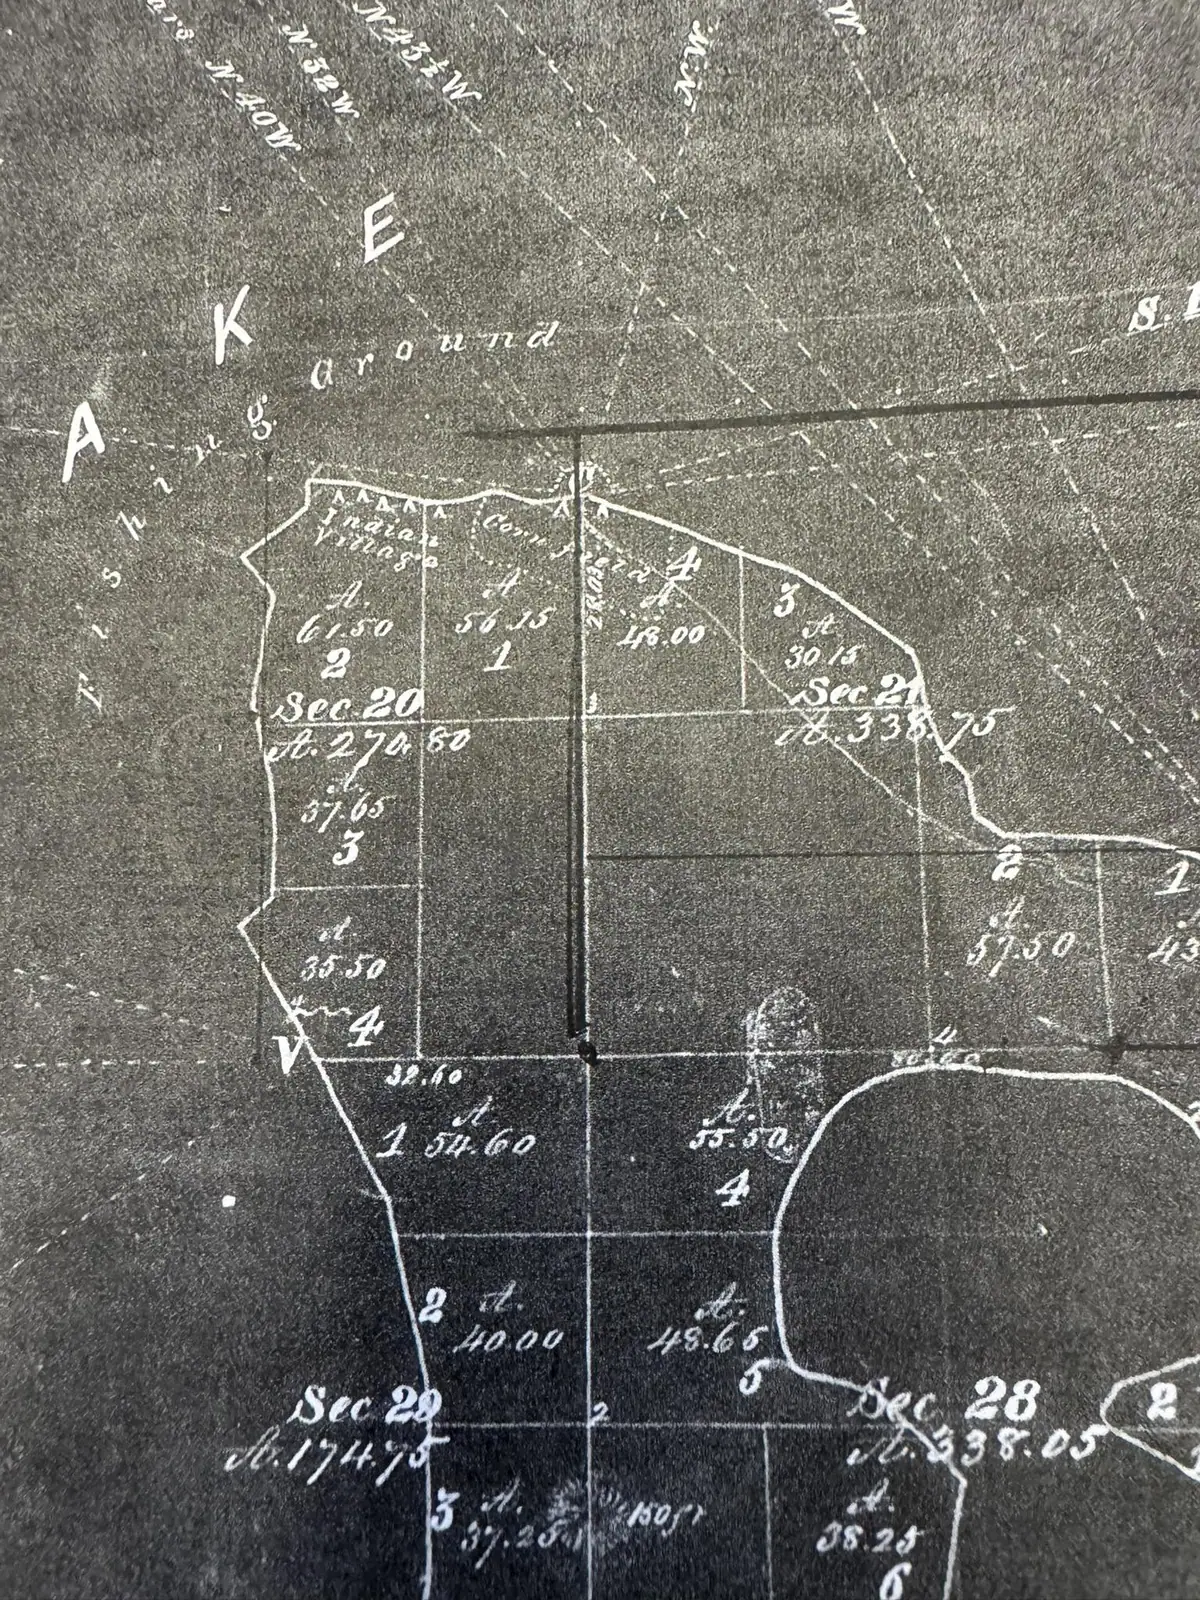 N. 40 W
N 32 W
N. 43½ W
N. W.
W
L A K E
Fishing Ground
Indian
Village
Cornfield
A.
61.50
2
A
56.15
1
28.03
4
A.
48.00
3
A
30.15
Sec. 20
A. 270.80
Sec 21
A. 338.75
A.
37.65
3
2
1
A
35.50
4
A
57.50
43
V
32.60
4
80.00
1
A
54.60
A.
55.50
4
2
A.
40.00
A.
48.65
5
Sec 29
A. 174.75
2
Sec. 28
A. 338.05
2
3
A.
37.25
150 ft
A.
38.25
6